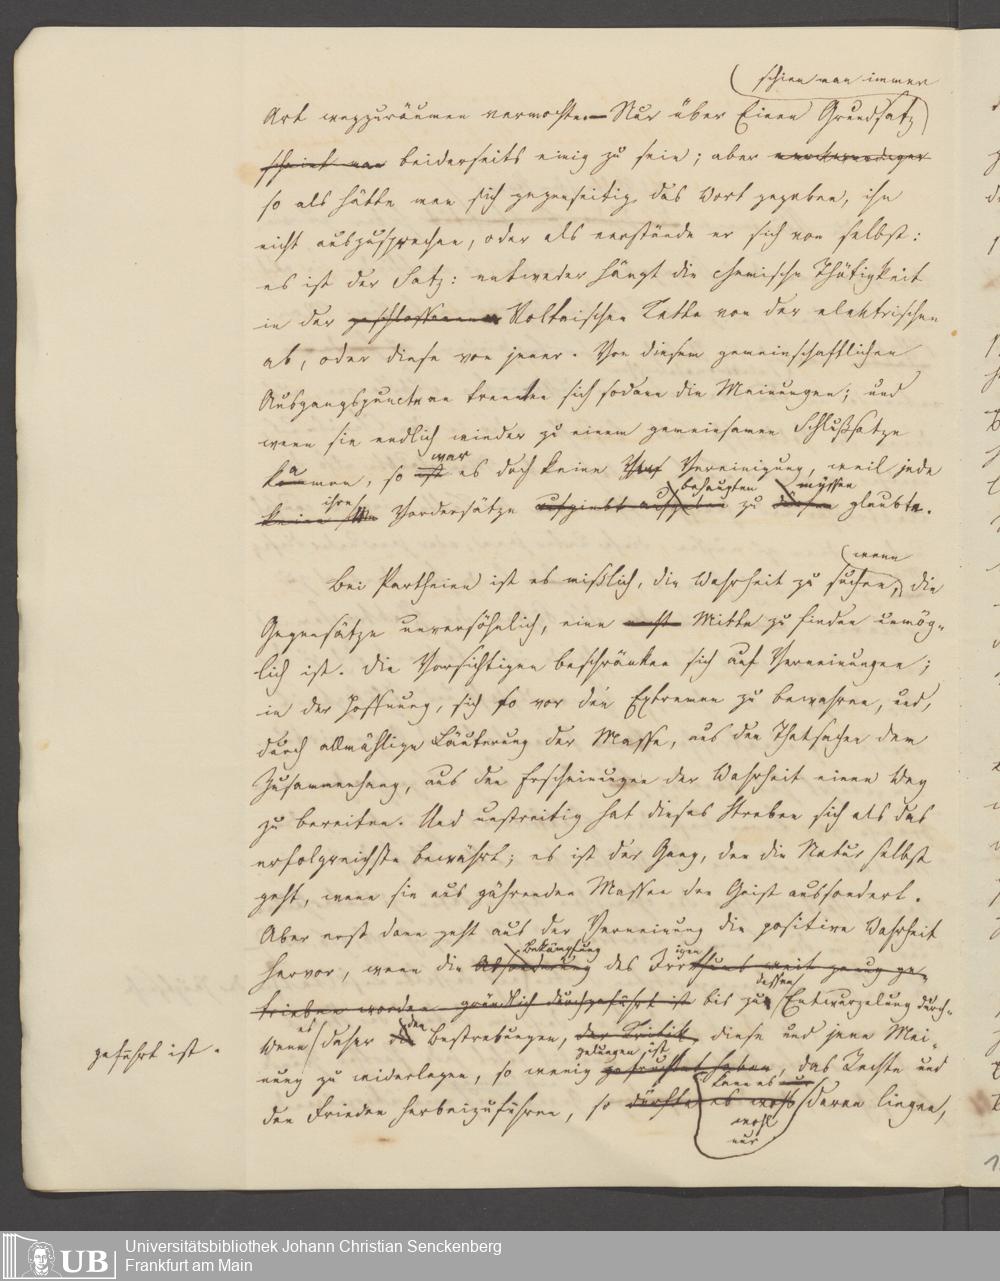 schien man immer
Art wegzuräumen vermochte. – Nur über Einen Grundsatz
scheint man beiderseits einig zu sein; aber merkwürdiger
so als hätte man sich gegenseitig das Wort gegeben, ihn
nicht auszusprechen, oder als verstände er sich von selbst:
es ist der Satz: entweder hängt die chemische Thätigkeit
in der geschlossenen Voltaischen Kette von der elektrischen
ab, oder diese von jener. Von diesem gemeinschaftlichen
Ausgangspuncte an trennten sich sodann die Meinungen; und
wenn sie endlich wieder zu einem gemeinsamen Schlußsatze
kamen, so ist war es doch keine Vereinigung, weil jede
keine ihre Vordersätze aufgiebt behaupten zu dürfen müssen glaubte.
Bei Partheien ist es mißlich, die Wahrheit zu suchen, wenn die
Gegensätze unversöhnlich, eine Mitte zu finden unmög-
lich ist. Die Vorsichtigen beschränken sich auf Verneinungen;
in der Hoffnung, sich so vor den Extremen zu bewahren, und,
durch allmählige Läuterung der Masse, aus den Thatsachen dem
Zusammenhang, aus den Erscheinungen der Wahrheit einen Weg
zu bereiten. Und unstreitig hat dieses Streben sich als das
erfolgreichste bewährt; es ist der Gang, den die Natur selbst
geht, wenn sie aus gährenden Massen den Geist aussondert.
Aber erst dann geht aus der Verneinung die positive Wahrheit
hervor, wenn die Absonderung Bekämpfung des Irrthums igen weit genug ge-
trieben worden gründlich durchgeführt ist bis zu dessen Entwurzelung durch-
geführt ist.
Wenn es daher den Bestrebungen, der Kritik, diese und jene Mei-
nung zu widerlegen, so wenig gefruchtet haben gelungen ist, das Rechte und
den Frieden herbeizuführen, so dürfte es wohl kann es nur daran liegen,
wohl
nur
Universitätsbibliothek Johann Christian Senckenberg
Frankfurt am Main
UB